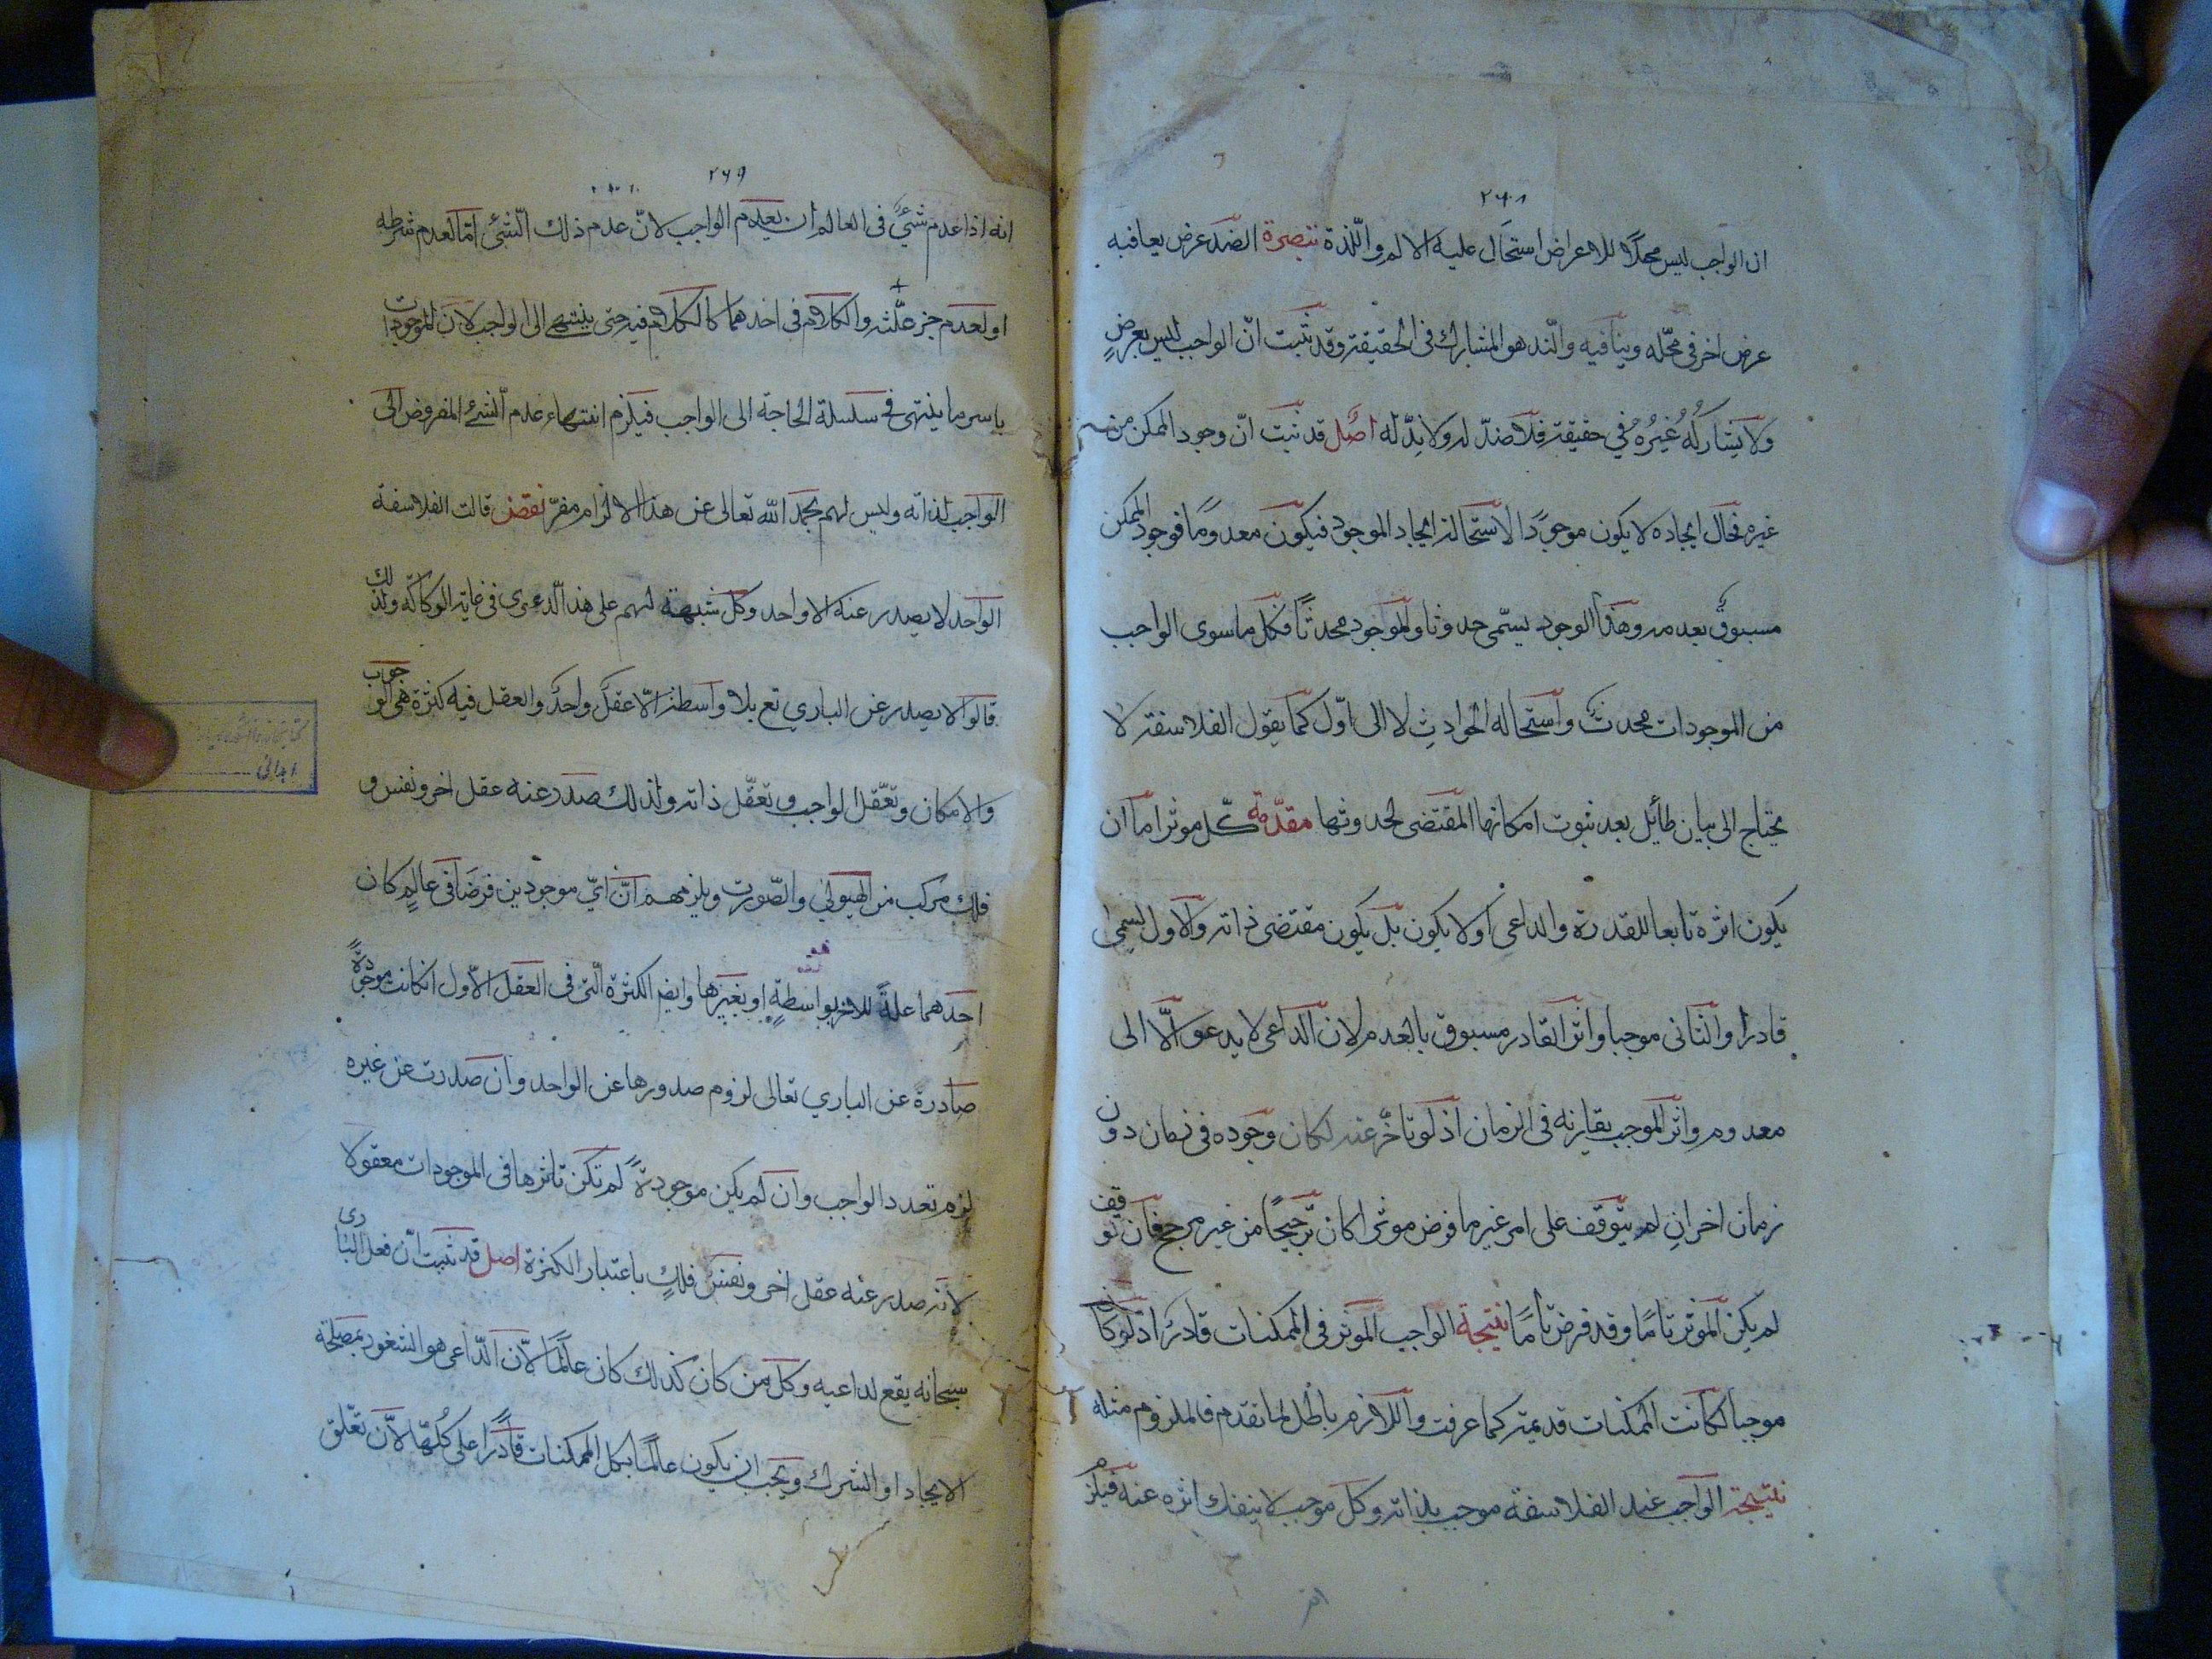 ٢٦٨
ان الواجب ليس محلا للاعراض استحال عليه الالم واللذة تبصرة الضد عرض يعاقبه
عرض اخر فى محله وينافيه والند هو المشارك فى الحقيقة وقد ثبت ان الواجب ليس بعرض
ولا يشاركه غيره في حقيقته فلا ضد له ولا ند له اصل قد ثبت ان وجود الممكن من
غيره فحال ايجاده لا يكون موجودا لاستحالة ايجاد الموجود فيكون معدوما فوجود الممكن
مسبوق بعدمه وهذا الوجود يسمى حدوثا والموجود محدثا فكل ما سوى الواجب
من الموجودات محدث واستحالة الحوادث لا الى اول كما يقول الفلاسفة لا
يحتاج الى بيان طائل بعد ثبوت امكانها المقتضى لحدوثها مقدمة كل موثر اما ان
يكون اثره تابعا للقدرة والداعى او لا يكون بل يكون مقتضى ذاته والاول يسمى
قادرا والثانى موجبا واثر القادر مسبوق بالعدم لان الداعى لا يدعو الا الى
معدوم واثر الموجب يقارنه فى الزمان اذ لو تاخر عنه لكان وجوده فى زمان دون
زمان اخر ان لم يتوقف على امر غير ما فرض موثرا كان ترجيحا من غير مرجح فان توقف
لم يكن الموثر تاما وقد فرض تاما نتيجة الواجب الموثر فى الممكنات قادر اذ لو كان
موجبا لكانت الممكنات قديمة كما عرفت واللازم باطل لما تقدم فالملزوم مثله
نتيجة الواجب عند الفلاسفة موجب بذاته وكل موجب لا ينفك اثره عنه فيلزم
٢٦٩
انه اذا عدم شئ فى العالم ان يعدم الواجب لان عدم ذلك الشئ اما لعدم شرطه
او لعدم جزء علته والكلام فى احدهما كالكلام فيه حتى ينتهى الى الواجب لان الموجودات
باسرها ينتهى فى سلسلة الحاجة الى الواجب فيلزم انتهاء عدم الشئ المفروض الى
الواجب لذاته وليس لهم بحمد الله تعالى عن هذا الالزام مفر نقض قالت الفلاسفة
الواحد لا يصدر عنه الا واحد وكل شبهة لهم على هذا الدعوى فى غاية الركاكة ولذلك
قالوا لا يصدر عن الباري تع بلا واسطة الا عقل واحد والعقل فيه كثرة هى الوجوب
والامكان وتعقل الواجب وتعقل ذاته ولذلك صدر عنه عقل اخر ونفس و
فلك مركب من الهيولى والصورت ويلزمهم ان اي موجودين فرضا فى عالم كان
احدهما علة للاخر بواسطة او بغيرها وايضا الكثرة التى فى العقل الاول انكانت موجودة
صادرة عن الباري تعالى لزم صدورها عن الواحد وان صدرت عن غيره
لزم تعدد الواجب وان لم يكن موجودة لم تكن تاثرها فى الموجودات معقولا
لانه صدر عنه عقل اخر ونفس فلك باعتبار الكثرة اصل قد ثبت ان فعل البارى
سبحانه يقع لداعيه وكل من كان كذلك كان عالما لان الداعى هو الشعور بمصلحة
الايجاد او الترك ويجب ان يكون عالما بكل الممكنات قادرا على كلها لان تعلق